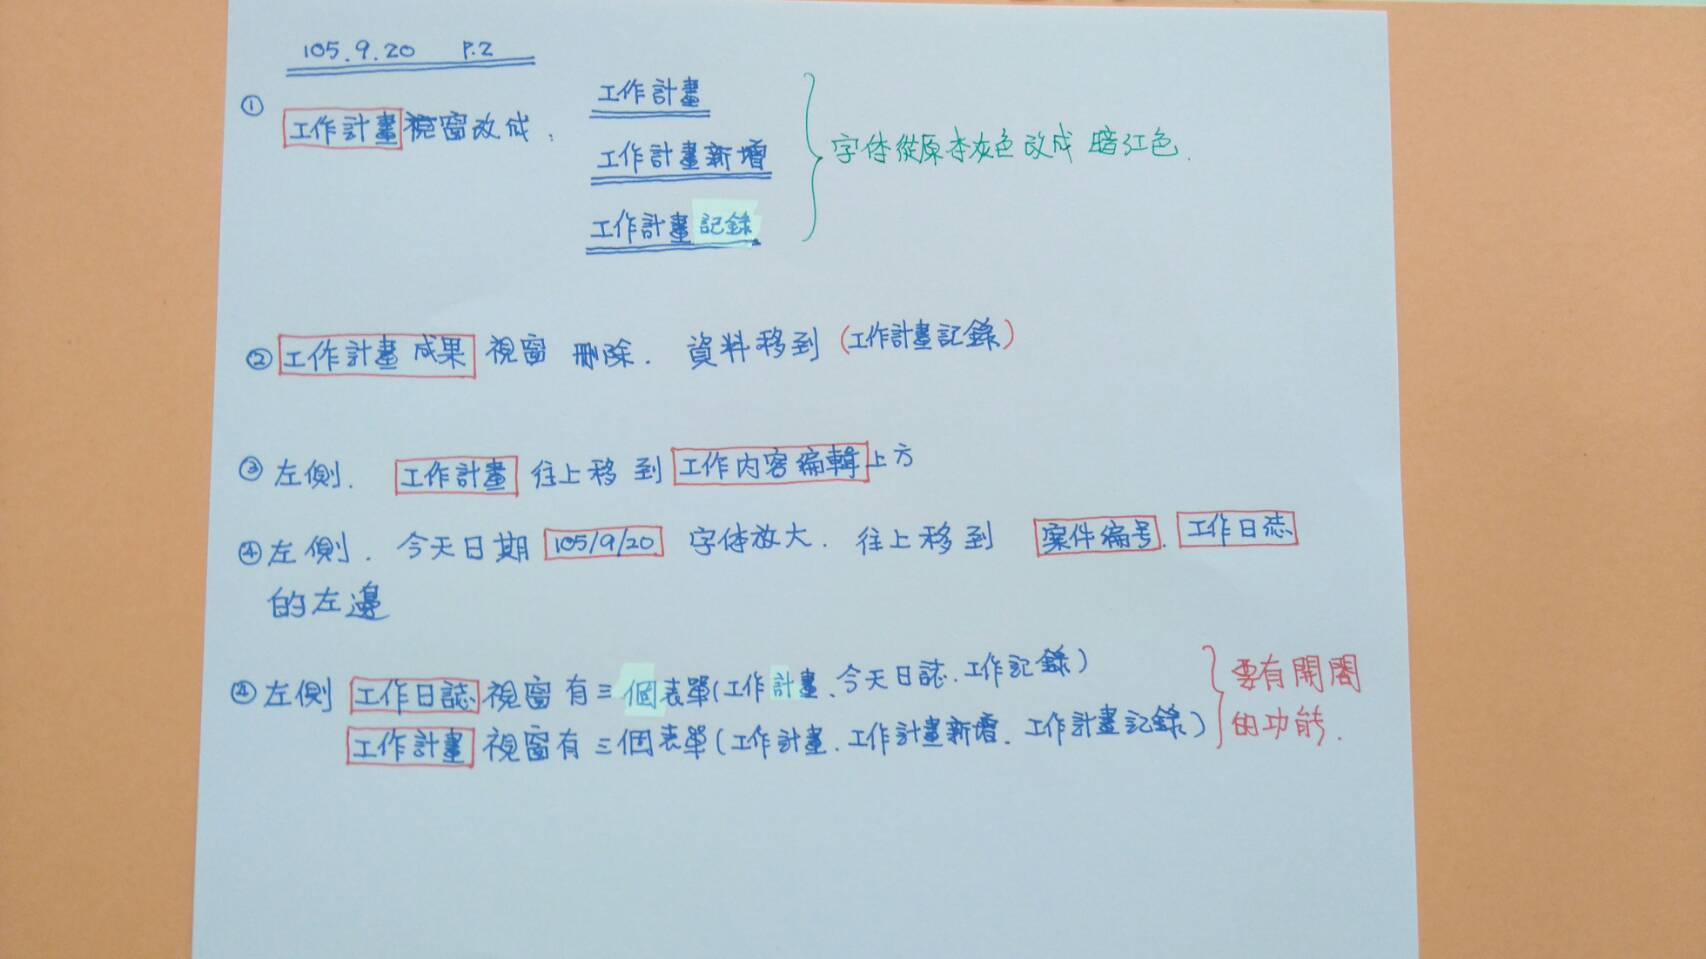 105.9.20 P.2
① 工作計畫視窗改成:
工作計畫
工作計畫新增
工作計畫記錄
字体從原本灰色改成 暗紅色.
② 工作計畫 成果 視窗 刪除. 資料移到 (工作計畫記錄)
③ 左側. 工作計畫 往上移 到 工作內容編輯 上方
④ 左側. 今天日期 105/9/20 字体放大. 往上移到 案件編号. 工作日誌
的左邊
④ 左側 工作日誌 視窗 有三個表單(工作計畫、今天日誌、工作記錄)
工作計畫 視窗有三個表單(工作計畫、工作計畫新增、工作計畫記錄)
要有開闔
的功能.